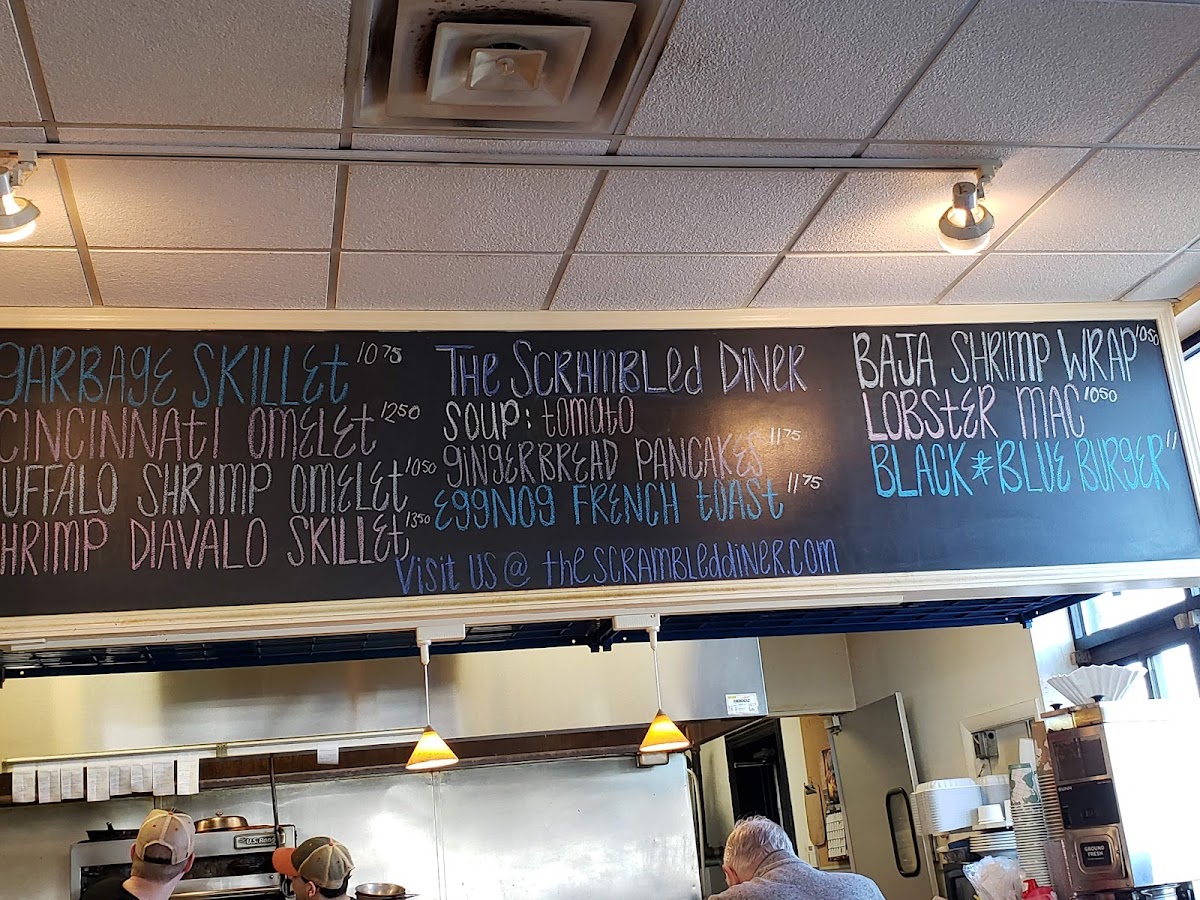 GARBAGE SKILLET 10 75
CINCINNATI OMELET 12 50
UFFALO SHRIMP OMELET 10 50
HRIMP DIAVALO SKILLET 13 50
THE SCRAMBLED DINER
SOUP: TOMATO
GINGERBREAD PANCAKES 11 75
EGGNOG FRENCH TOAST 11 75
VISIT US @ THESCRAMBLEDDINER.COM
BAJA SHRIMP WRAP 10 50
LOBSTER MAC 10 50
BLACK & BLUE BURGER 11
U.S. Range
BUNN
GROUND
FRESH